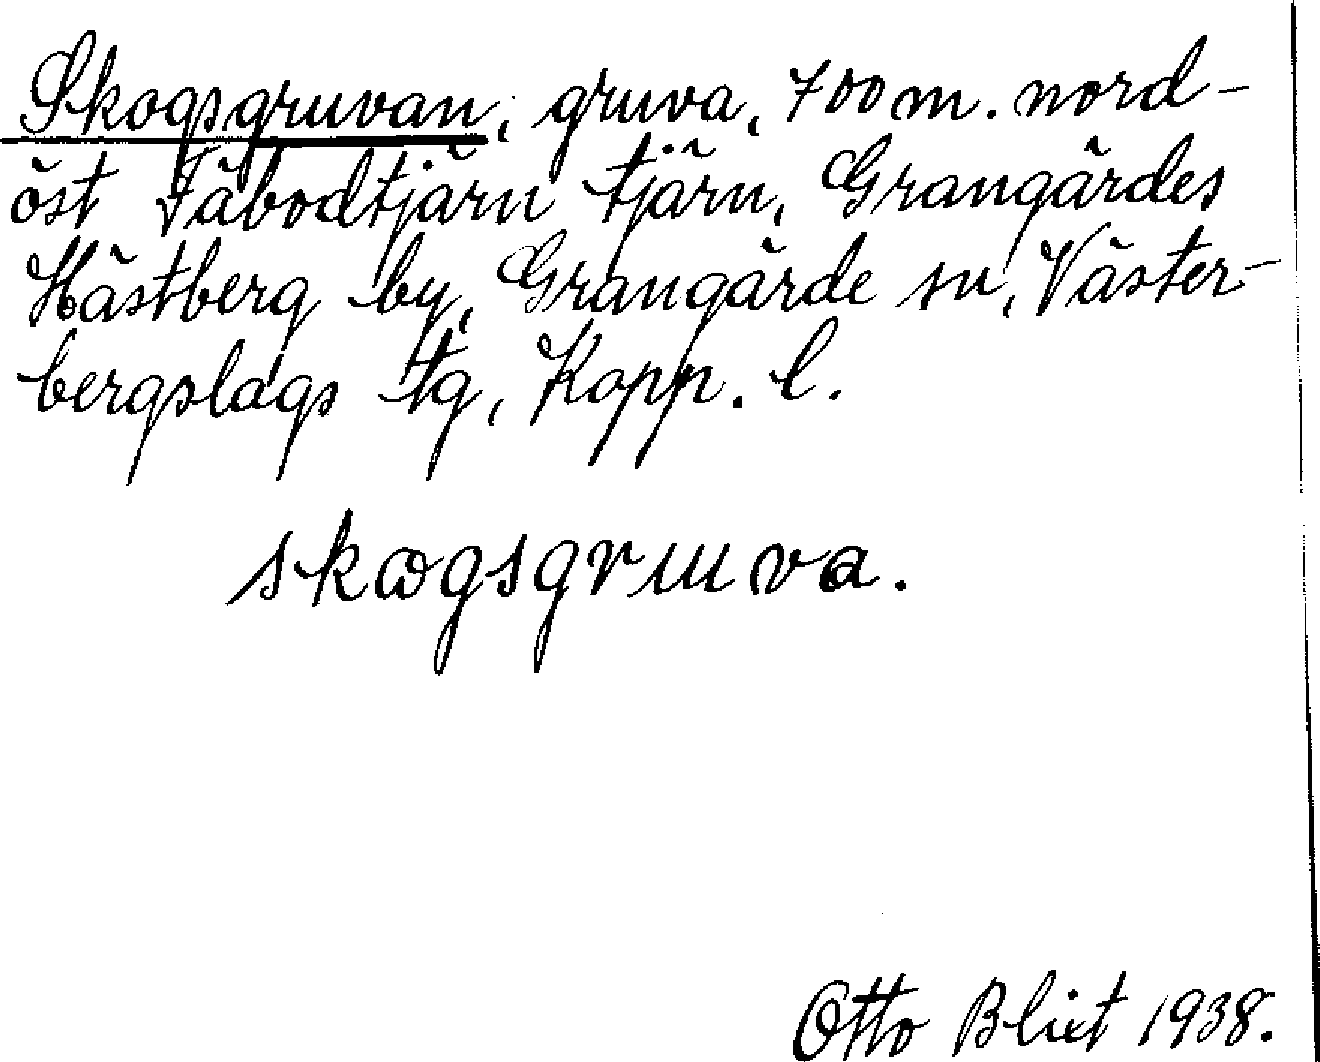 Skogsgruvan, gruva, 700 m. nord-
öst Fäbodtjärn tjärn, Grangärdes
Hästberg by, Grangärde sn, Väster-
bergslags tg, Kopp. l.
skɷgsgruuva.
Otto Blixt 1938.